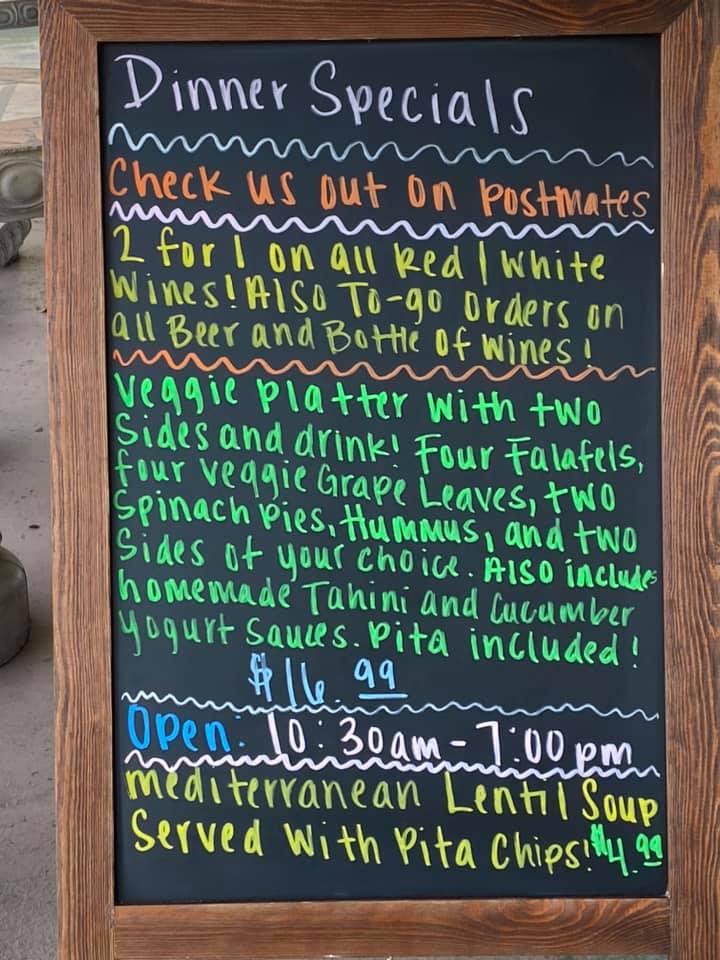 Dinner Specials
Check us out on Postmates
2 for 1 on all Red / White
Wines! Also To-go orders on
all Beer and Bottle of Wines!
Veggie Platter with two
Sides and drink! Four Falafels,
four veggie Grape Leaves, two
Spinach Pies, Hummus, and two
Sides of your choice. Also includes
homemade Tahini and Cucumber
Yogurt Sauces. Pita included!
$16.99
Open: 10:30am - 7:00pm
Mediterranean Lentil Soup
Served With Pita Chips! $4.99